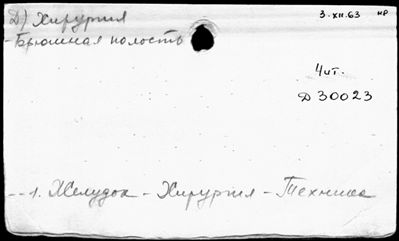 Д) Хирургия
3-XII.63 нр
- Брюшная полость
Чит.
Д 30023
-- 1. Желудок - Хирургия - Техника